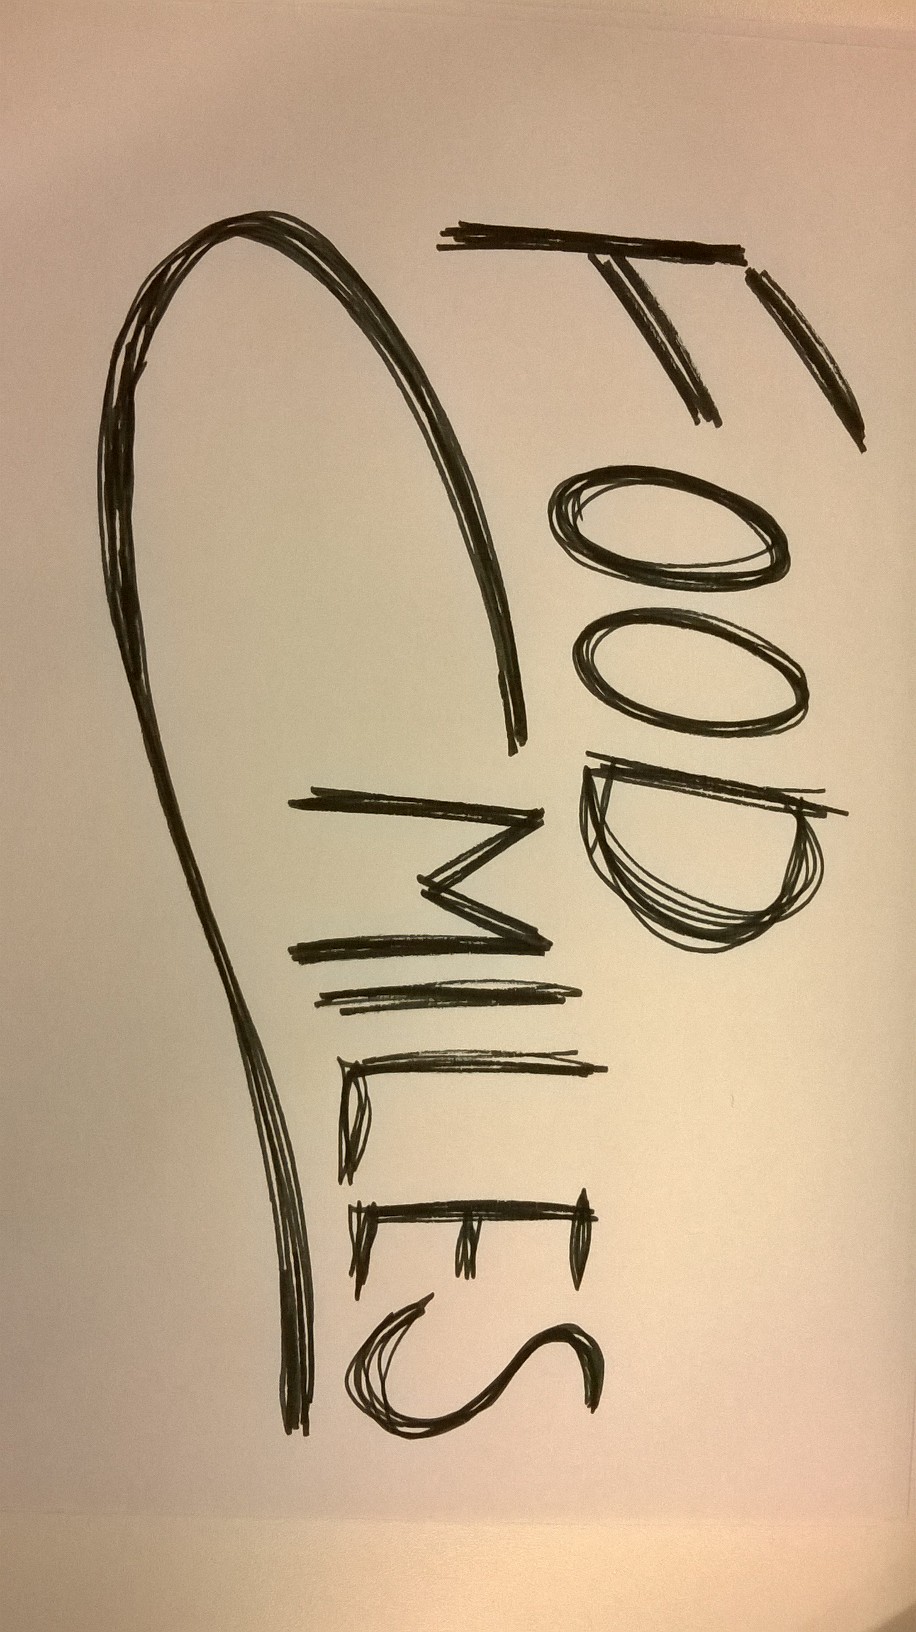 FOOD
MILES